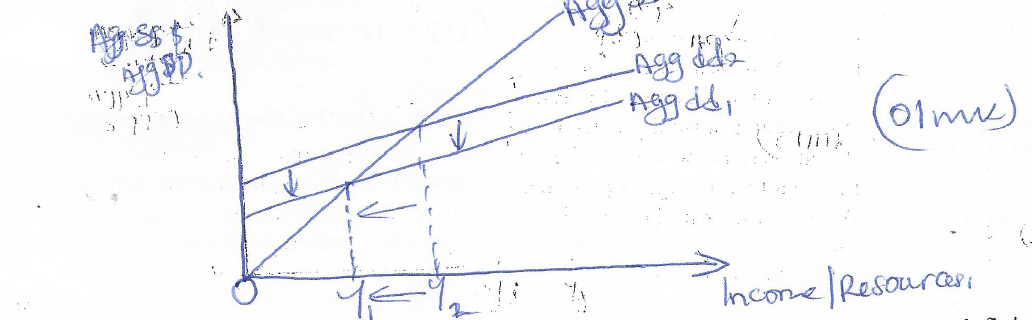 Agg
Ag SS &
Agg DD.
Agg dd2
Agg dd1
(01mk)
O
Y1
Y2
Income/Resources.